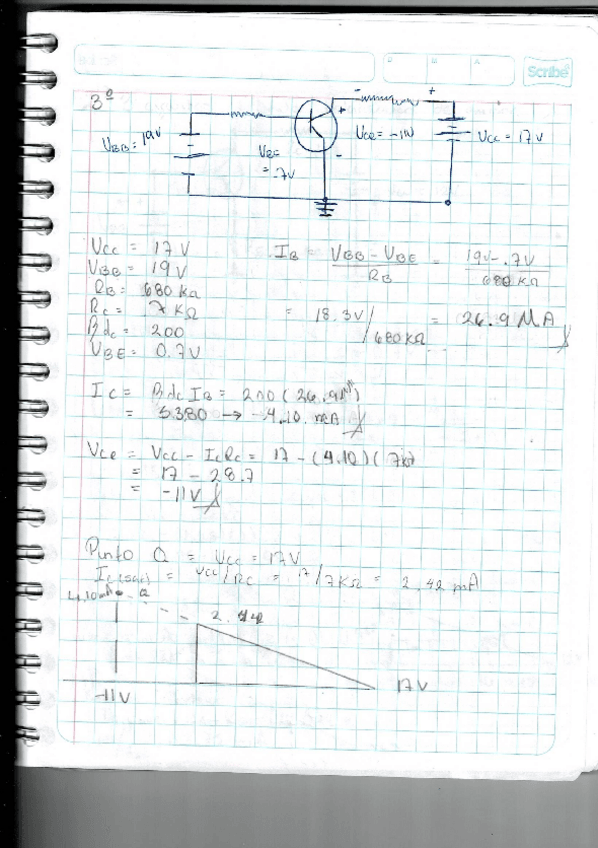 Scribe
3º
VBB = 19V
VBE = .7V
VCE = -11V
VCC = 17V
VCC = 17V
VBB = 19V
RB = 680 KΩ
RC = 7 KΩ
βdc = 200
VBE = 0.7V
IB = VBB - VBE / RB = 19V - .7V / 680 KΩ
= 18.3V / 680KΩ = 26.9 MA
IC = βdc IB = 200 (26.9M)
= 5380 → 4.10 mA
Vce = Vcc - IcRc = 17 - (4.10)(7kΩ)
= 17 - 28.7
= -11V
Punto Q = Vcc = 17V
IC(sac) = VCC/RC = 17/7KΩ = 2.42 mA
4.10mA Q
2.42
-11V
17V